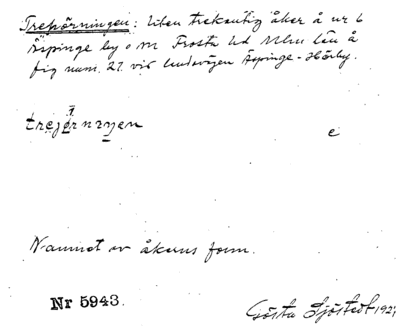 Trehörningen: liten trekantig åker å nr 6
Äspinge by o sn Frosta hd Mlm län å
fig num. 27 vid landsvägen Äspinge - Hörby.
e
Namnet av åkerns form.
Nr 5943.
Gösta Sjöstedt 1921